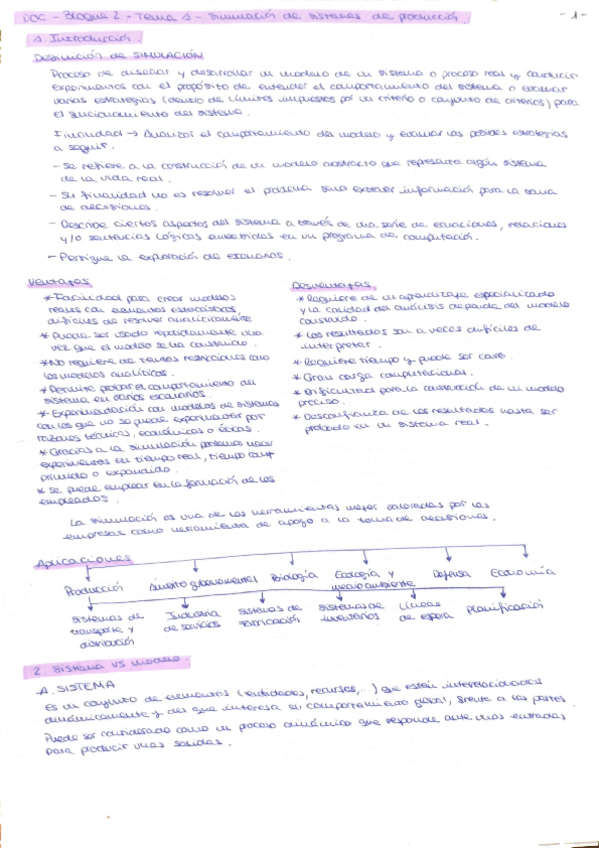 DOC - Bloque 2 - Tema 1 - Simulación de sistemas de producción. - 1 -
1. Introducción.
Definición de SIMULACIÓN
Proceso de diseñar y desarrollar un modelo de un sistema o proceso real y conducir
experimentos con el propósito de entender el comportamiento del sistema o evaluar
varias estrategias (dentro de límites impuestos por un criterio o conjunto de criterios) para
el funcionamiento del sistema.
Finalidad → Analizar el comportamiento del modelo y evaluar las posibles estrategias
a seguir.
- Se refiere a la construcción de un modelo abstracto que representa algún sistema
de la vida real.
- Su finalidad no es resolver el problema sino extraer información para la toma
de decisiones.
- Describe ciertos aspectos del sistema a través de una serie de ecuaciones, relaciones
y/o sentencias lógicas embebidas en un programa de computación.
- Persigue la exploración de escenarios.
Ventajas
* Facilidad para crear modelos
reales con elementos estocásticos,
difíciles de resolver analíticamente
* Puede ser usado repetidamente una
vez que el modelo se ha construido.
* No requiere de tantas restricciones como
los modelos analíticos.
* Permite probar el comportamiento del
sistema en varios escenarios.
* Experimentación con modelos de sistemas
con los que no se puede experimentar por
razones técnicas, económicas o éticas.
* Gracias a la simulación podemos hacer
experimentos en tiempo real, tiempo com-
primido o expandido.
* Se puede emplear en la formación de los
empleados.
Desventajas
* Requiere de un aprendizaje especializado
y la calidad del análisis depende del modelo
construido.
* Los resultados son a veces difíciles de
interpretar.
* Requiere tiempo y puede ser caro.
* Gran carga computacional.
* Dificultad para la construcción de un modelo
preciso.
* Desconfianza de los resultados hasta ser
probado en un sistema real.
La simulación es una de las herramientas mejor valoradas por las
empresas como herramienta de apoyo a la toma de decisiones.
Aplicaciones
Producción Ámbito gubernamental Biología Ecología y medio ambiente Defensa Economía
Sistemas de transporte y distribución Industria de servicios Sistemas de fabricación Sistemas de inventarios Líneas de espera Planificación
2. Sistema vs modelo.
A. SISTEMA
Es un conjunto de elementos (entidades, recursos, ...) que están interrelacionados
dinámicamente y del que interesa su comportamiento global, frente a las partes.
Puede ser considerado como un proceso dinámico que responde ante unas entradas
para producir unas salidas.